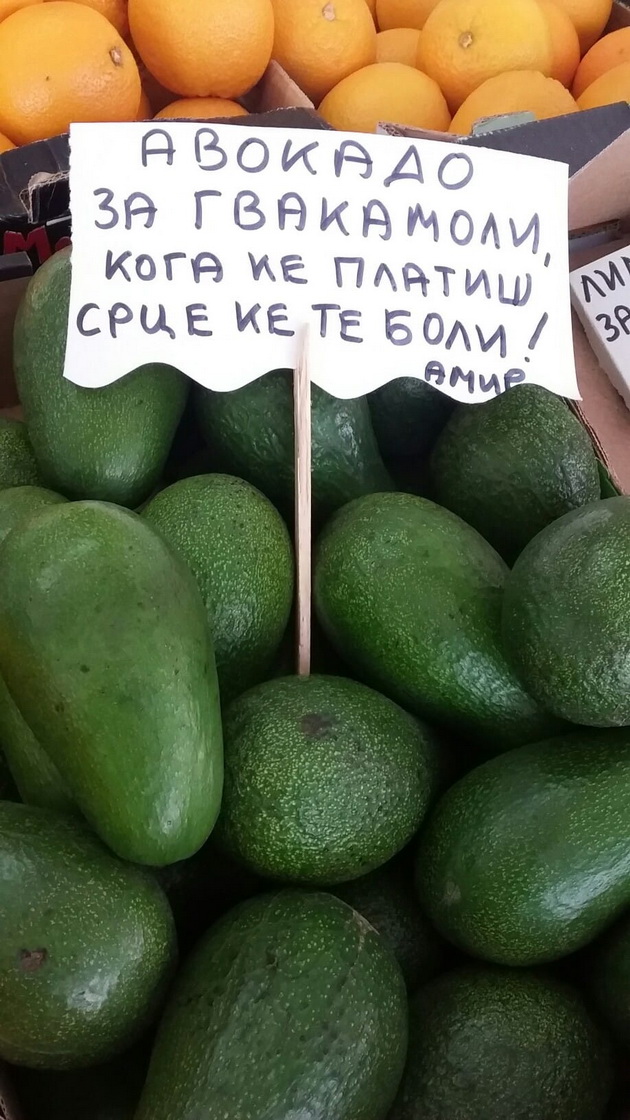 АВОКАДО
ЗА ГВАКАМОЛИ,
КОГА КЕ ПЛАТИШ
СРЦЕ КЕ ТЕ БОЛИ!
АМИР
ЗА